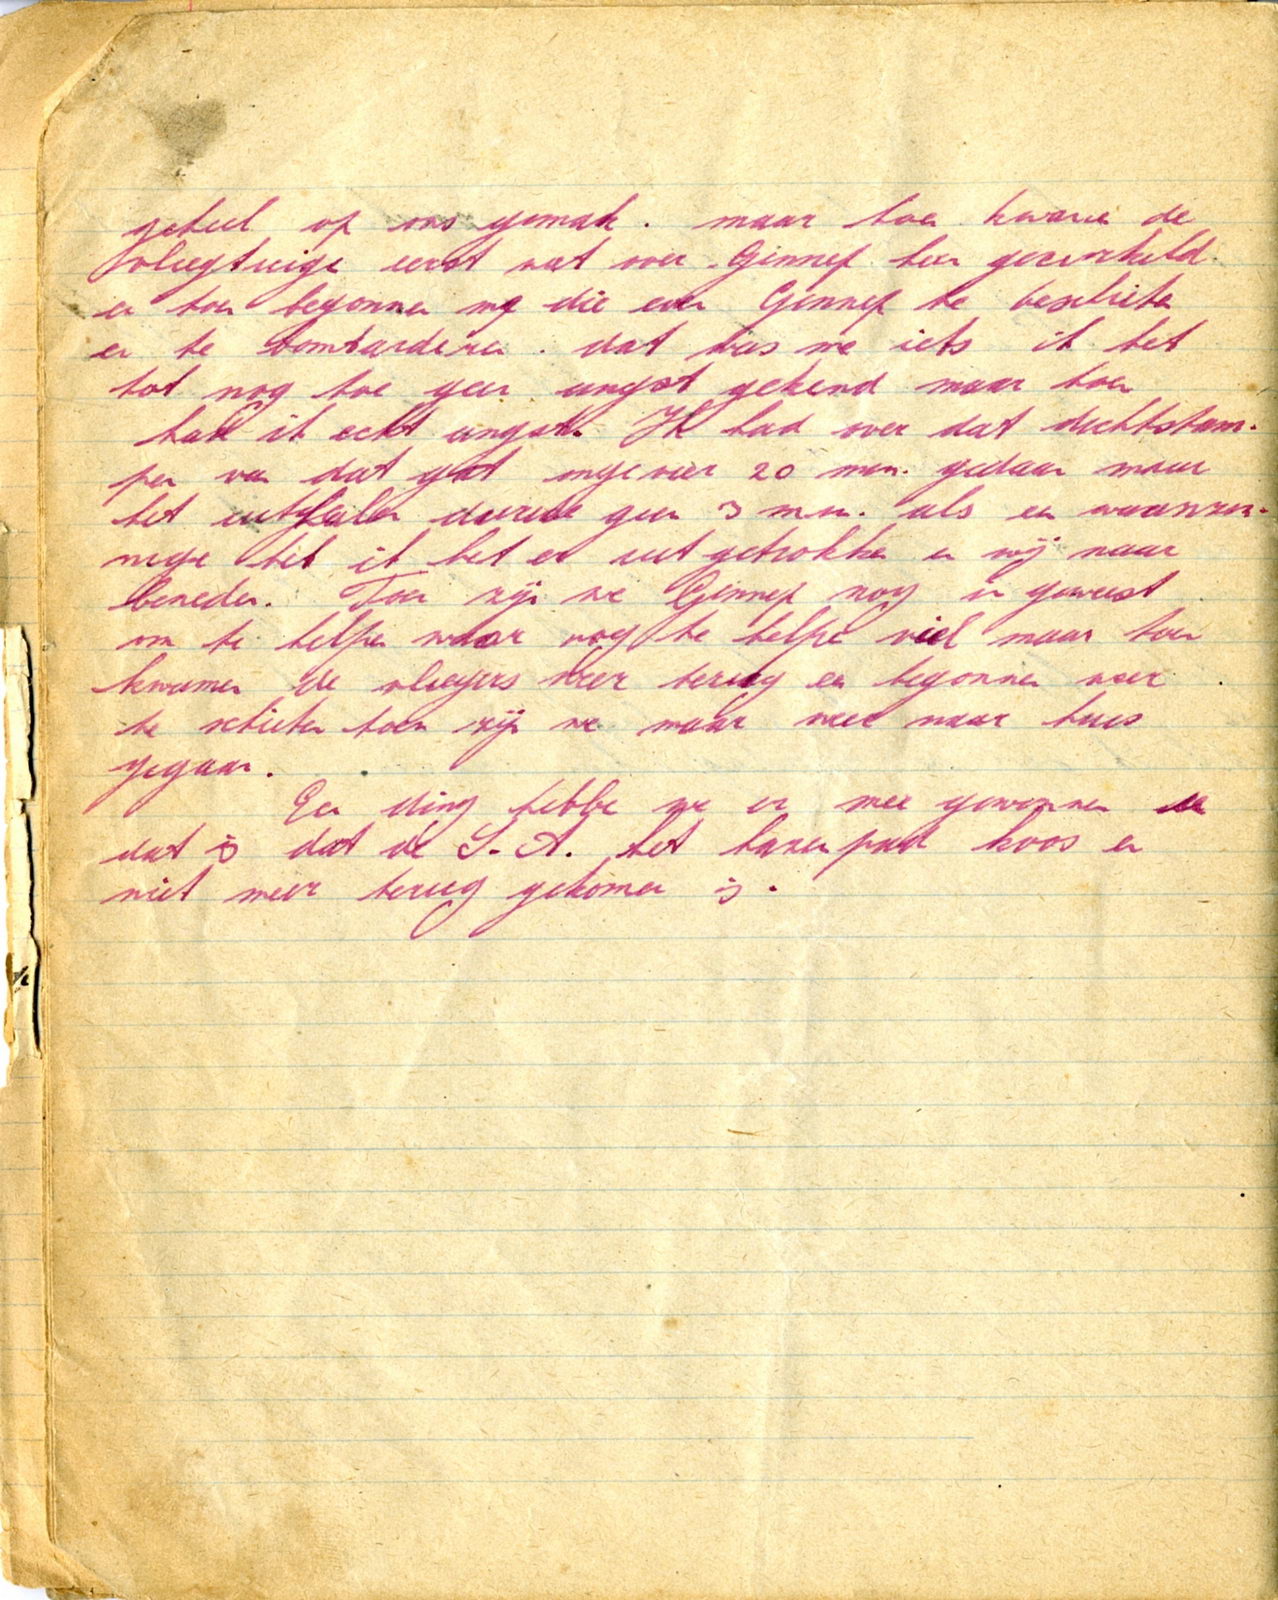 geheel op ons gemak. maar toen kwamen de
vliegtuige eerst wat over Gennep heen gecirkeld
en toen begonnen me die even Gennep te beschieten
en te bombarderen. dat was me iets ik het
tot nog toe geen angst gekend maar toen
had ik echt angst. Ik had over dat dichtstam-
pen van dat gat ongeveer 20 min. gedaan maar
het uithalen duurde geen 3 min. als een waanzin-
nige heb ik het er uit getrokken en wij naar
beneden. Toen zijn we Gennep nog in geweest
om te helpen waar nog te helpe viel maar toen
kwamen de vliegers weer terug en begonnen weer
te schieten toen zijn we maar weer naar huis
gegaan.
Een ding hebbe we er mee gewonnen
dat is dat de S.A. het hazenpad koos en
niet meer terug gekomen is.